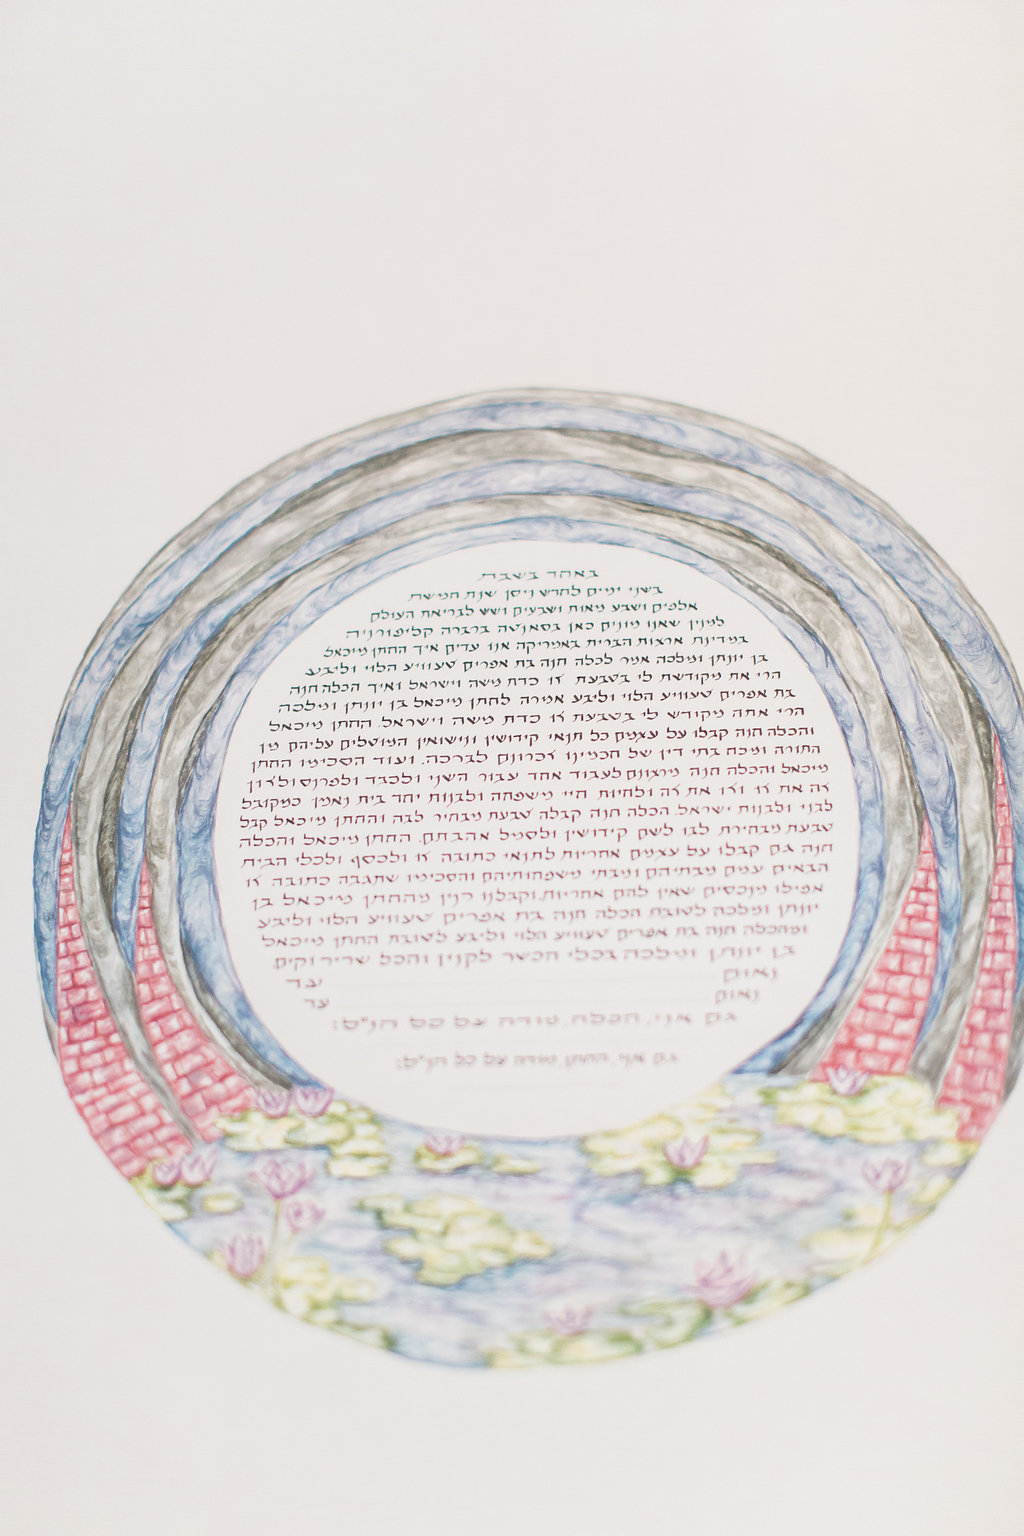 באחד בשבת
בשני ימים לחדש ניסן שנת חמשת
אלפים ושבע מאות ושבעים ושש לבריאת העולם
למנין שאנו מונים כאן בסאנטה ברברה קליפורניה
במדינת ארצות הברית באמריקה אנו עדים איך החתן מיכאל
בן יונתן ומלכה אמר לכלה חנה בת אפרים שעוויע הלוי וליבע
הרי את מקודשת לי בטבעת זו כדת משה וישראל ואיך הכלה חנה
בת אפרים שעוויע הלוי וליבע אמרה לחתן מיכאל בן יונתן ומלכה
הרי אתה מקודש לי בטבעת זו כדת משה וישראל. החתן מיכאל
והכלה חנה קבלו על עצמם כל תנאי קידושין ונישואין המוטלים עליהם מן
התורה ומכח בתי דין של חכמינו זכרונם לברכה. ועוד הסכימו החתן
מיכאל והכלה חנה מרצונם לעבוד אחד עבור השני ולכבד ולפרנס ולזון
זה את זו וזו את זה ולחיות חיי משפחה ולבנות יחד בית נאמן כמקובל
לבני ולבנות ישראל. הכלה חנה קבלה טבעת מבחיר לבה והחתן מיכאל קבל
טבעת מבחירת לבו לשם קידושין ולסמל אהבתם. החתן מיכאל והכלה
חנה גם קבלו על עצמם אחריות לתנאי כתובה זו ולכסף ולכלי הבית
הבאים עמם מבתיהם ומבתי משפחותיהם והסכימו שתגבה כתובה זו
אפילו מנכסים שאין להם אחריות. וקבלנו קנין מהחתן מיכאל בן
יונתן ומלכה לטובת הכלה חנה בת אפרים שעוויע הלוי וליבע
ומהכלה חנה בת אפרים שעוויע הלוי וליבע לטובת החתן מיכאל
בן יונתן ומלכה בכלי הכשר לקנין והכל שריר וקים
נאום עד
נאום עד
גם אני, הכלה, מודה על כל הנ"ל:
גם אני, החתן, מודה על כל הנ"ל: